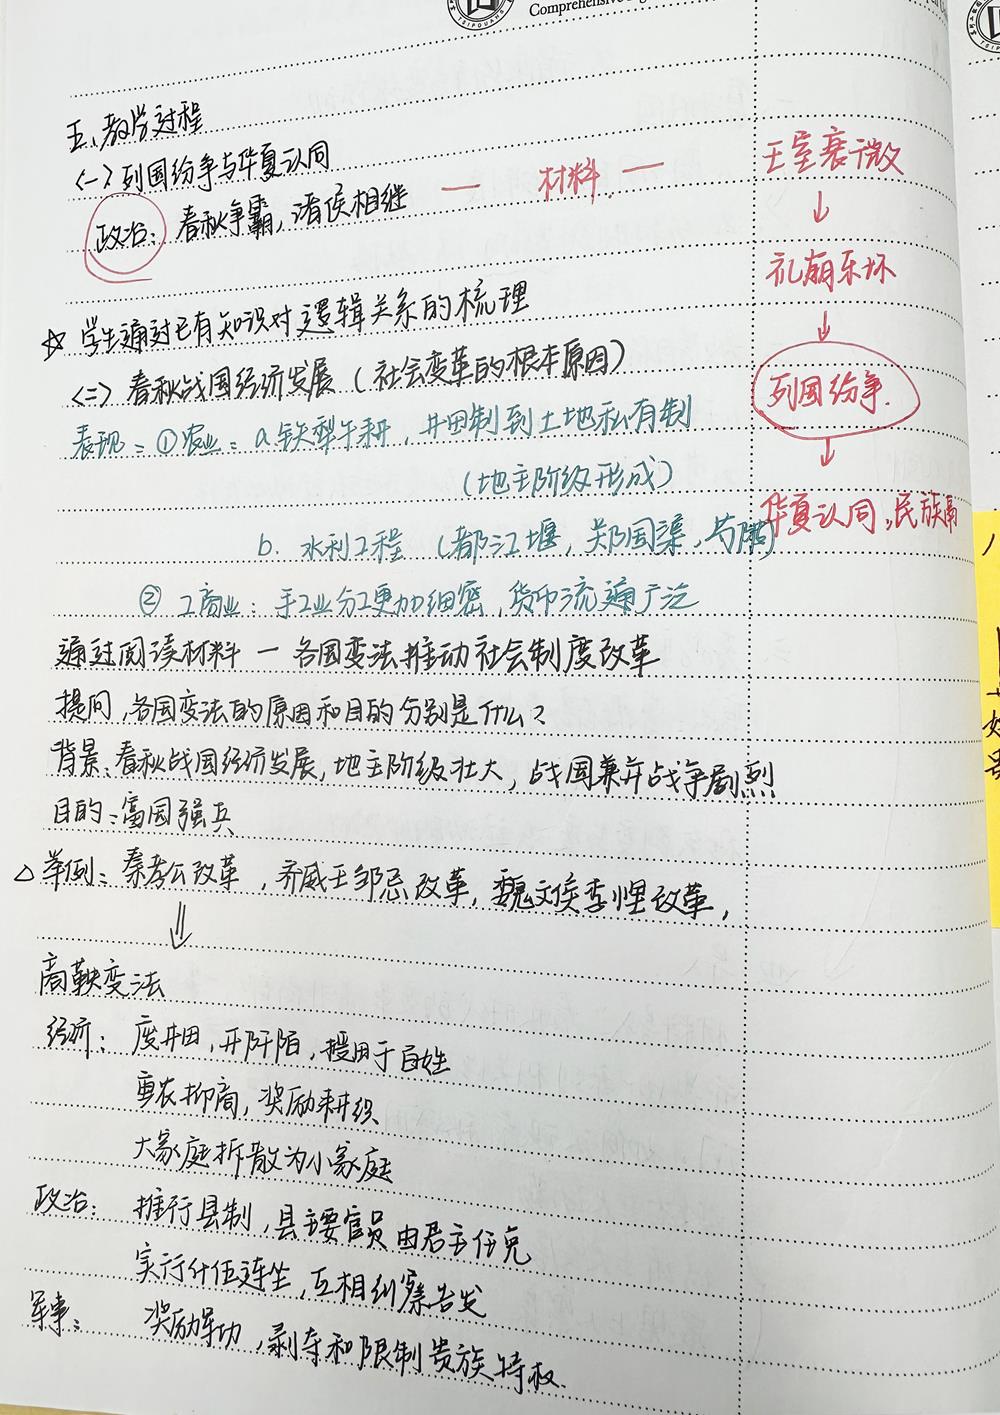 Comprehensive
五、教学过程
(一)列国纷争与华夏认同
政治：春秋争霸，诸侯相继 — 材料 —
王室衰微
↓
礼崩乐坏
↓
列国纷争
↓
华夏认同，民族
☆ 学生通过已有知识对逻辑关系的梳理
(二)春秋战国经济发展（社会变革的根本原因）
表现：①农业：a.铁犁牛耕，井田制到土地私有制
（地主阶级形成）
b. 水利工程（都江堰，郑国渠，芍陂）
② 工商业：手工业分工更加细密，货币流通广泛
通过阅读材料 — 各国变法推动社会制度改革
提问，各国变法的原因和目的分别是什么？
背景：春秋战国经济发展，地主阶级壮大，战国兼并战争剧烈
目的：富国强兵
△ 举例：秦孝公改革，齐威王邹忌改革，魏文侯李悝改革，
⇓
商鞅变法
经济：废井田，开阡陌，授田于百姓
重农抑商，奖励耕织
大家庭拆散为小家庭
政治：推行县制，县主要官员由君主任免
实行什伍连坐，互相纠察告发
军事：奖励军功，剥夺和限制贵族特权.